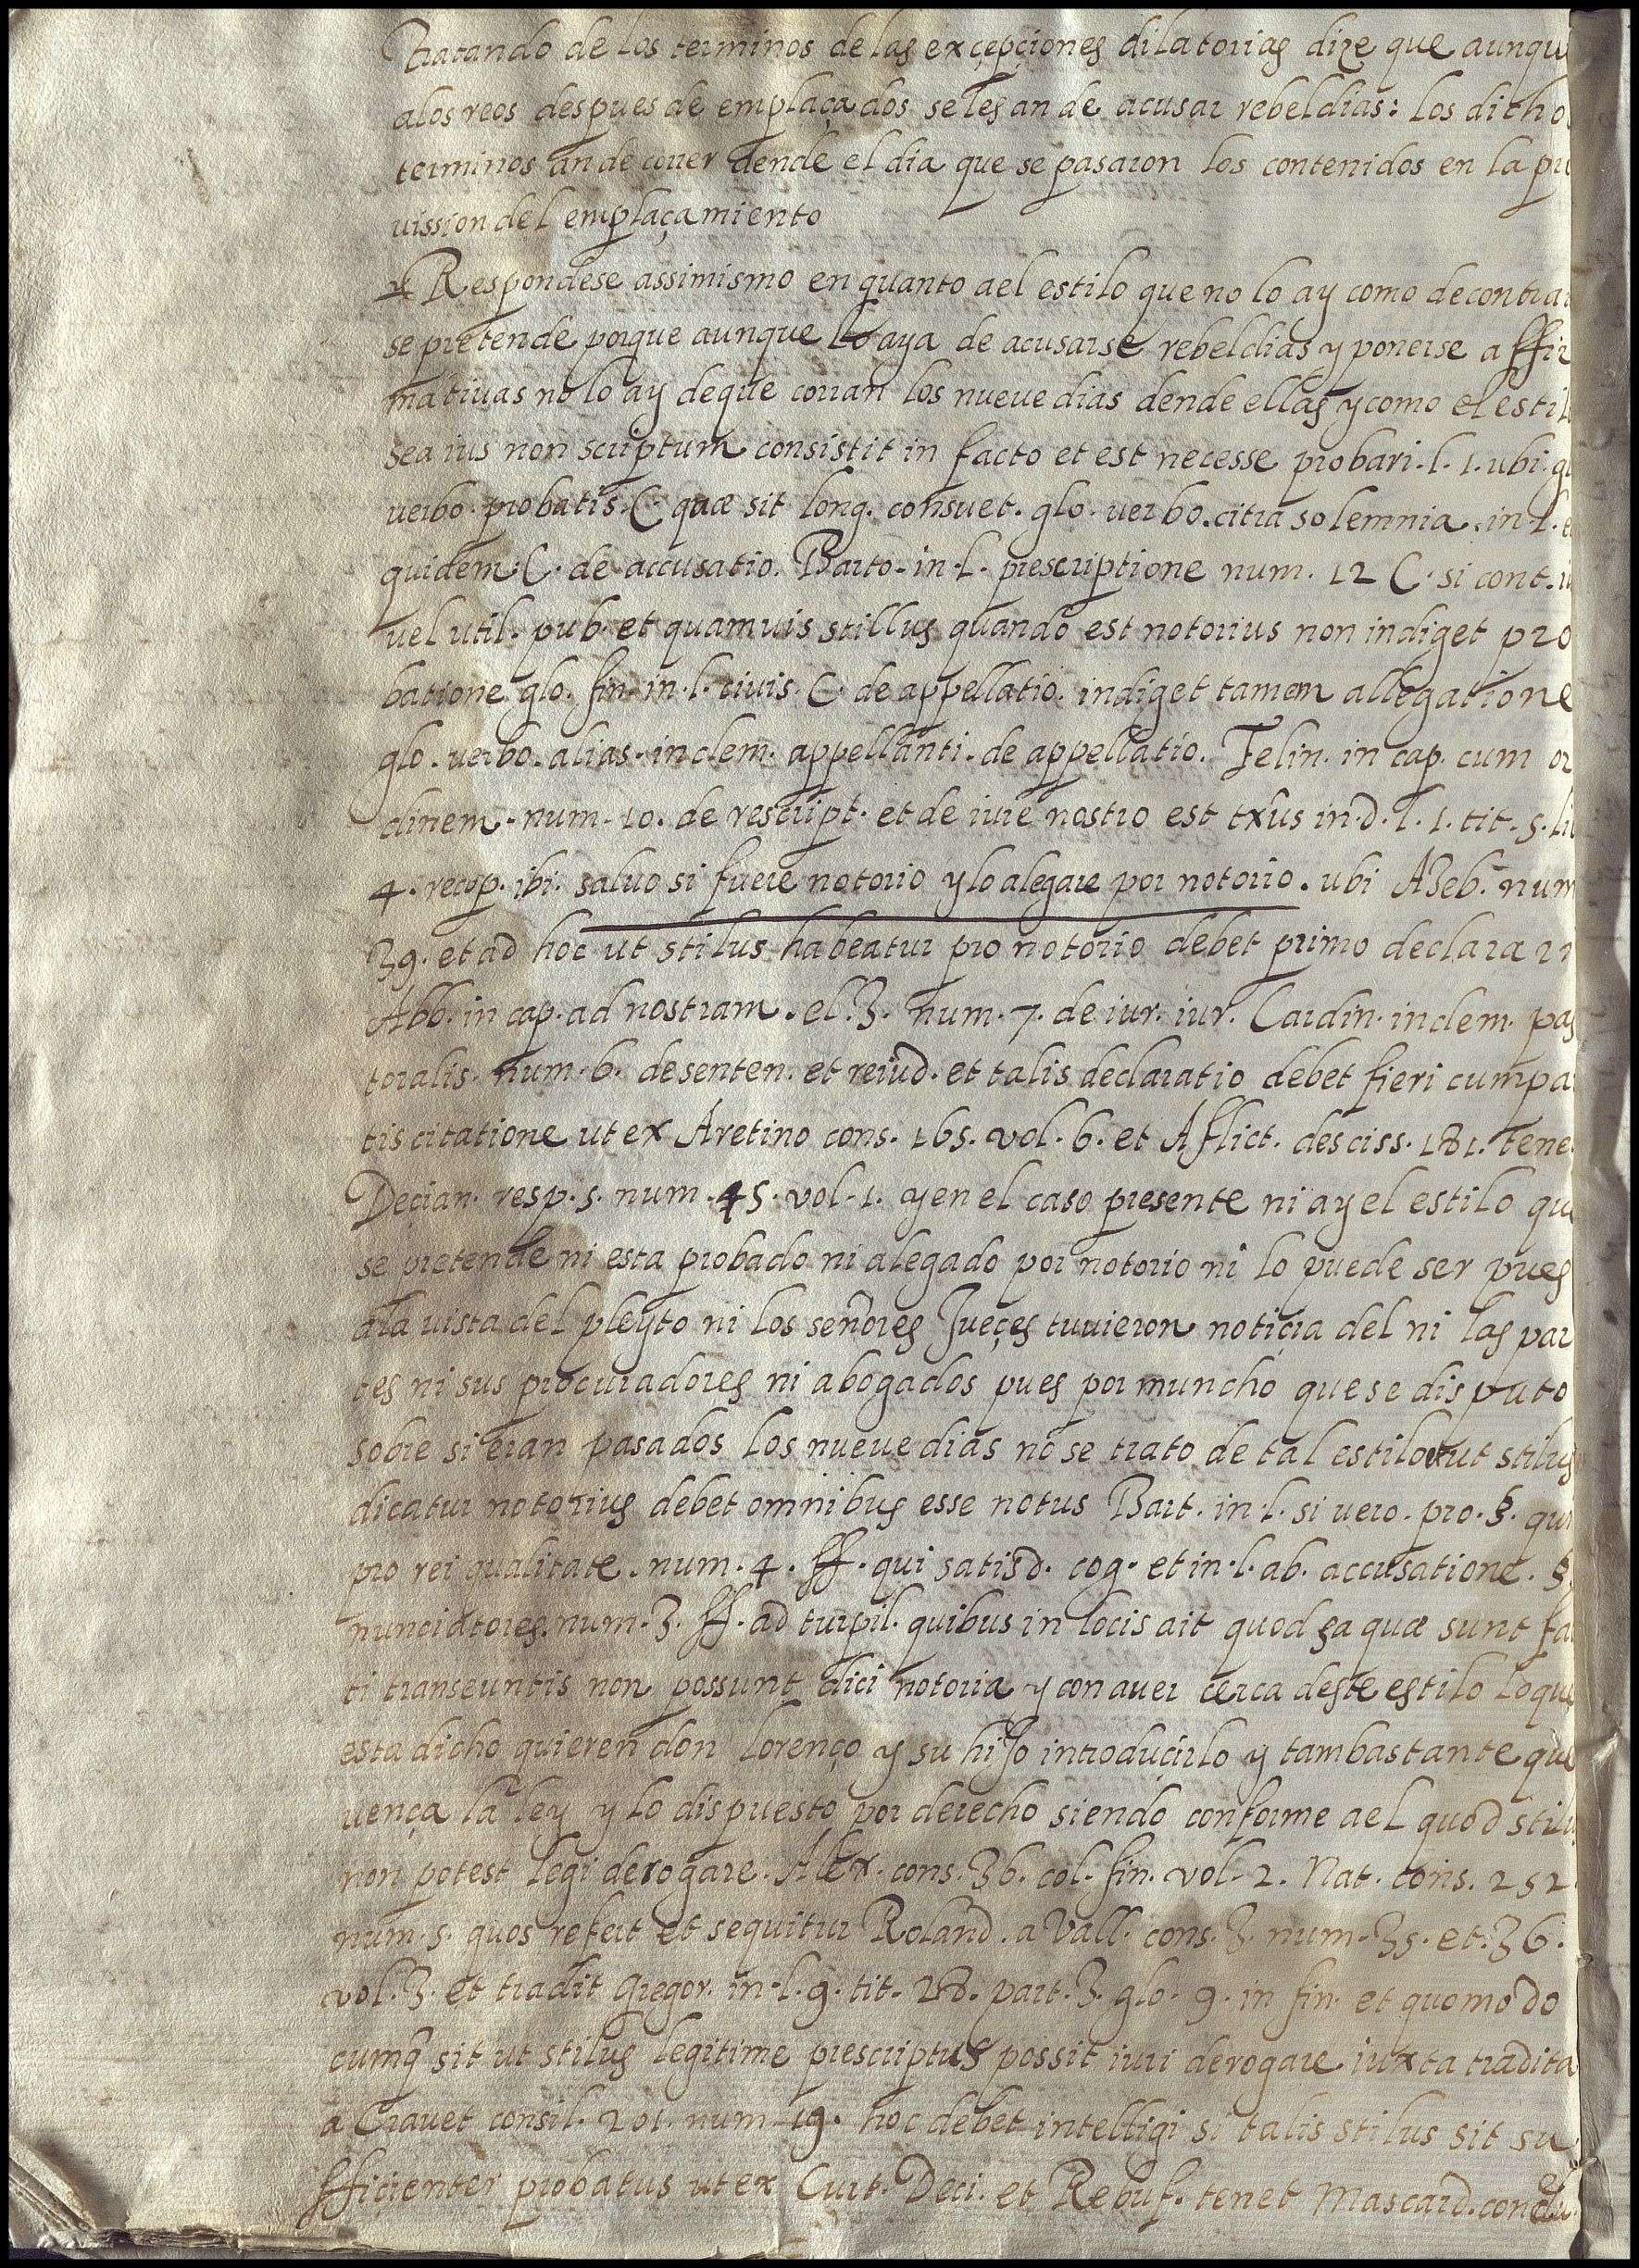 tratando de los terminos de las excepçiones dilatorias dize que aunqu
a los reos despues de emplaçados se les an de acusar rebeldias: los dicho
terminos an de correr dende el dia que se pasaron los contenidos en la pr
uission del emplaçamiento
Respondese assimismo en quanto a el estilo que no lo ay como de contrar
se pretende porque aunque lo aya de acusarse rebeldias y ponerse affir
matiuas no lo ay de que corran los nueue dias dende ellas y como el estil
sea ius non scriptum consistit in facto et est necesse probari. l. 1. ubi gl
uerbo. probatis. C. quæ sit long. consuet. glo. uerbo. citra solemnia. in. l. e
quidem. C. de accusatio. Barto. in. l. prescriptione num. 12 C. si cont. iu
uel util. pub. et quamuis stillus quando est notorius non indiget pro
batione glo. fin. in. l. ciuis. C. de appellatio. indiget tamen allegatione
glo. uerbo. alias. in clem. appellanti. de appellatio. Felin. in cap. cum or
dinem. num. 10. de rescript. et de iure nostro est txûs in. d. l. 1. tit. 5. li
4. recop. ibi. saluo si fuere notorio y lo alegare por notorio. ubi Aseb. num
39. et ad hoc ut stilus habeatur pro notorio debet primo declarari
Abb. in cap. ad nostram. el. 3. num. 7. de iur. iur. Cardin. in clem. pas
toralis. num. 6. de senten. et reiud. et talis declaratio debet fieri cum pa
tis citatione ut ex Aretino cons. 165. vol. 6. et Aflict. desciss. 181. tene
Deçian. resp. 5. num. 45. vol. 1. y en el caso presente ni ay el estilo qu
se pretende ni esta probado ni alegado por notorio ni lo puede ser pues
a la vista del pleyto ni los señores Jueçes tuuieron notiçia del ni las par
tes ni sus procuradores ni abogados pues por muncho que se disputo
sobre si eran pasados los nueue dias no se trato de tal estilo et ut stilus
dicatur notorius debet omnibus esse notus Bart. in. l. si uero. pro. §. qui
pro rei qualitate. num. 4. ff. qui satisd. cog. et in. l. ab. accusatione. §.
nunciatores. num. 3. ff. ad turpil. quibus in locis ait quod ea quæ sunt fa
ti transeuntis non possunt dici notoria y con auer cerca deste estilo lo que
esta dicho quieren don Lorenço y su hijo introduçirlo y tam bastante que
uença la ley y lo dispuesto por derecho siendo conforme a el quod stilu
non potest legi derogare. Alex. cons. 36. col. fin. vol. 2. Nat. cons. 252
num. 5. quos refert et sequitur Roland. a Vall. cons. 3. num. 35. et. 36.
vol. 3. et tradit Gregor. in. l. 9. tit. 28. part. 3. glo. 9. in fin. et quomodo
cumq̃ sit ut stilus legitime prescriptus possit iuri derogare iuxta tradita
a Crauet consil. 201. num. 19. hoc debet intelligi si talis stilus sit su
fficienter probatus ut ex Curt. Deci. et Rebuf. tenet Mascard. conclu